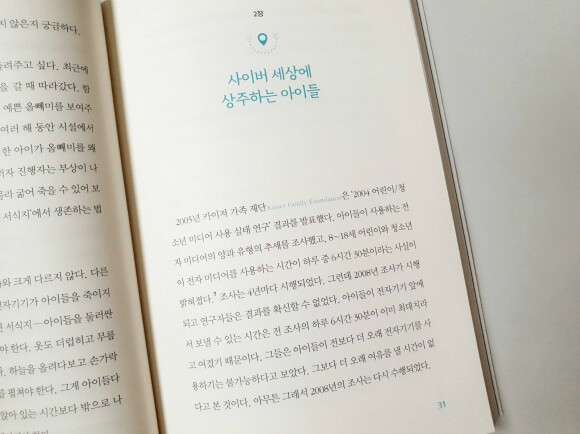 지 않은지 궁금하다.
들려주고 싶다. 최근에
을 갈 때 따라갔다. 함
예쁜 올빼미를 보여주
여러 해 동안 시설에서
한 아이가 올빼미를 왜
자 진행자는 부상이 나
몰라 굶어 죽을 수 있어 보
서식지'에서 생존하는 법
와 크게 다르지 않다. 다른
전자기기가 아이들을 죽이지
선 서식지—아이들을 둘러싼
야 한다. 옷도 더럽히고 무릎
다. 하늘을 올려다보고 손가락
펼쳐야 한다. 그게 아이들다
앉아 있는 시간보다 밖으로 나
2장
사이버 세상에
상주하는 아이들
2005년 카이저 가족 재단Kaiser Family Foundation은 '2004 어린이/청
소년 미디어 사용 실태 연구' 결과를 발표했다. 아이들이 사용하는 전
자 미디어의 양과 유형의 추세를 조사했고, 8~18세 어린이와 청소년
이 전자 미디어를 사용하는 시간이 하루 중 6시간 30분이라는 사실이
밝혀졌다.⁷ 조사는 4년마다 시행되었다. 그런데 2008년 조사가 시행
되고 연구자들은 결과를 확신할 수 없었다. 아이들이 전자기기 앞에
서 보낼 수 있는 시간은 전 조사의 하루 6시간 30분이 이미 최대치라
고 여겼기 때문이다. 그들은 아이들이 전보다 더 오래 전자기기를 사
용하기는 불가능하다고 보았다. 그보다 더 오래 여유를 낼 시간이 없
다고 본 것이다. 아무튼 그래서 2008년의 조사는 다시 수행되었다.
31